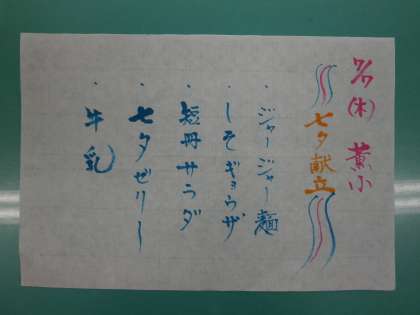 7/7(木) 薫小
七夕献立
・ジャージャー麺
・しそギョウザ
・短冊サラダ
・七夕ゼリー
・牛乳